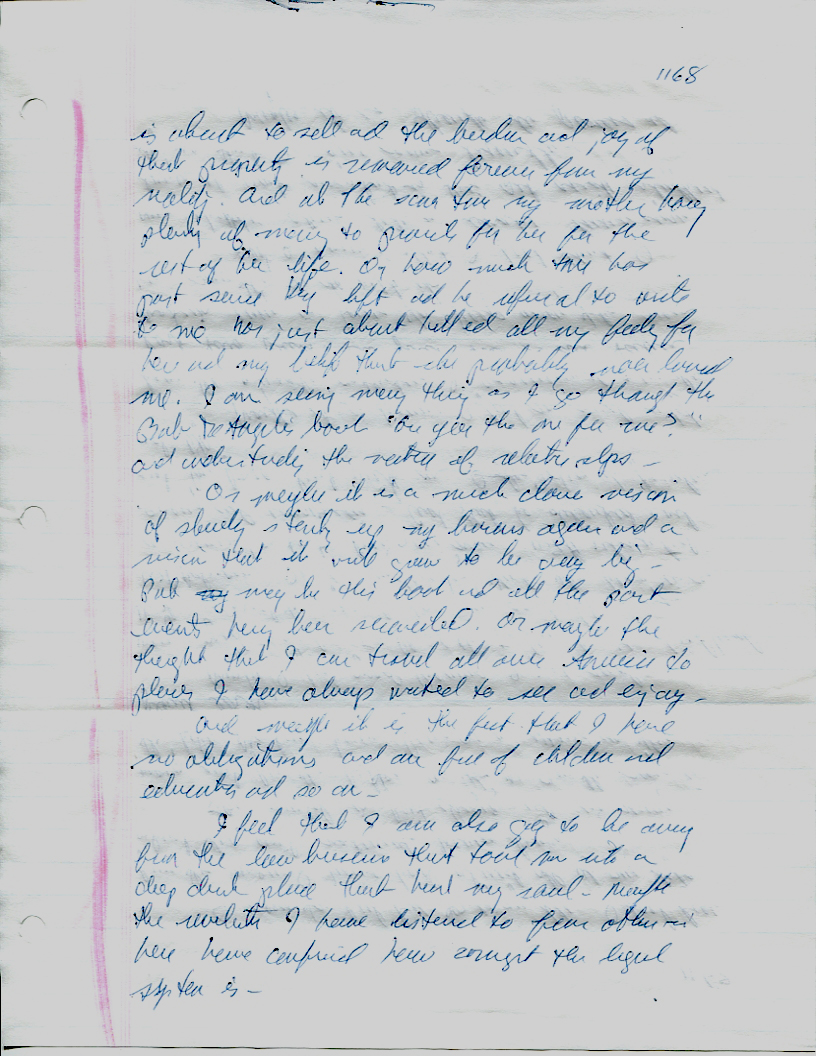 1168
is about to sell and the burden and joy of
that property is removed forever from my
reality. And at the same time my mother having
plenty of money to provide for her for the
rest of her life. Or how much time has
past since left and he refusal to write
to me has just about killed all my feeling for
her and my belief that she probably never loved
me. I am seeing many things as I go through the
Barb DeAngelis book "Are you the one for me?"
and understanding the nature of relationships -
Or maybe it is a much clearer vision
of slowly starting up my business again and a
vision that it will grow to be very big -
But maybe this book and all the past
events have been revealed. Or maybe the
thought that I can travel all over America to
places I have always wanted to see and enjoy -
And maybe it is the fact that I have
no obligations and am free of children and
education and so on -
I feel that I am also going to be away
from the law business that took me into a
deep dark place that hurt my soul - Maybe
the I have listened to from others in
here have confirmed how corrupt the legal
system is -